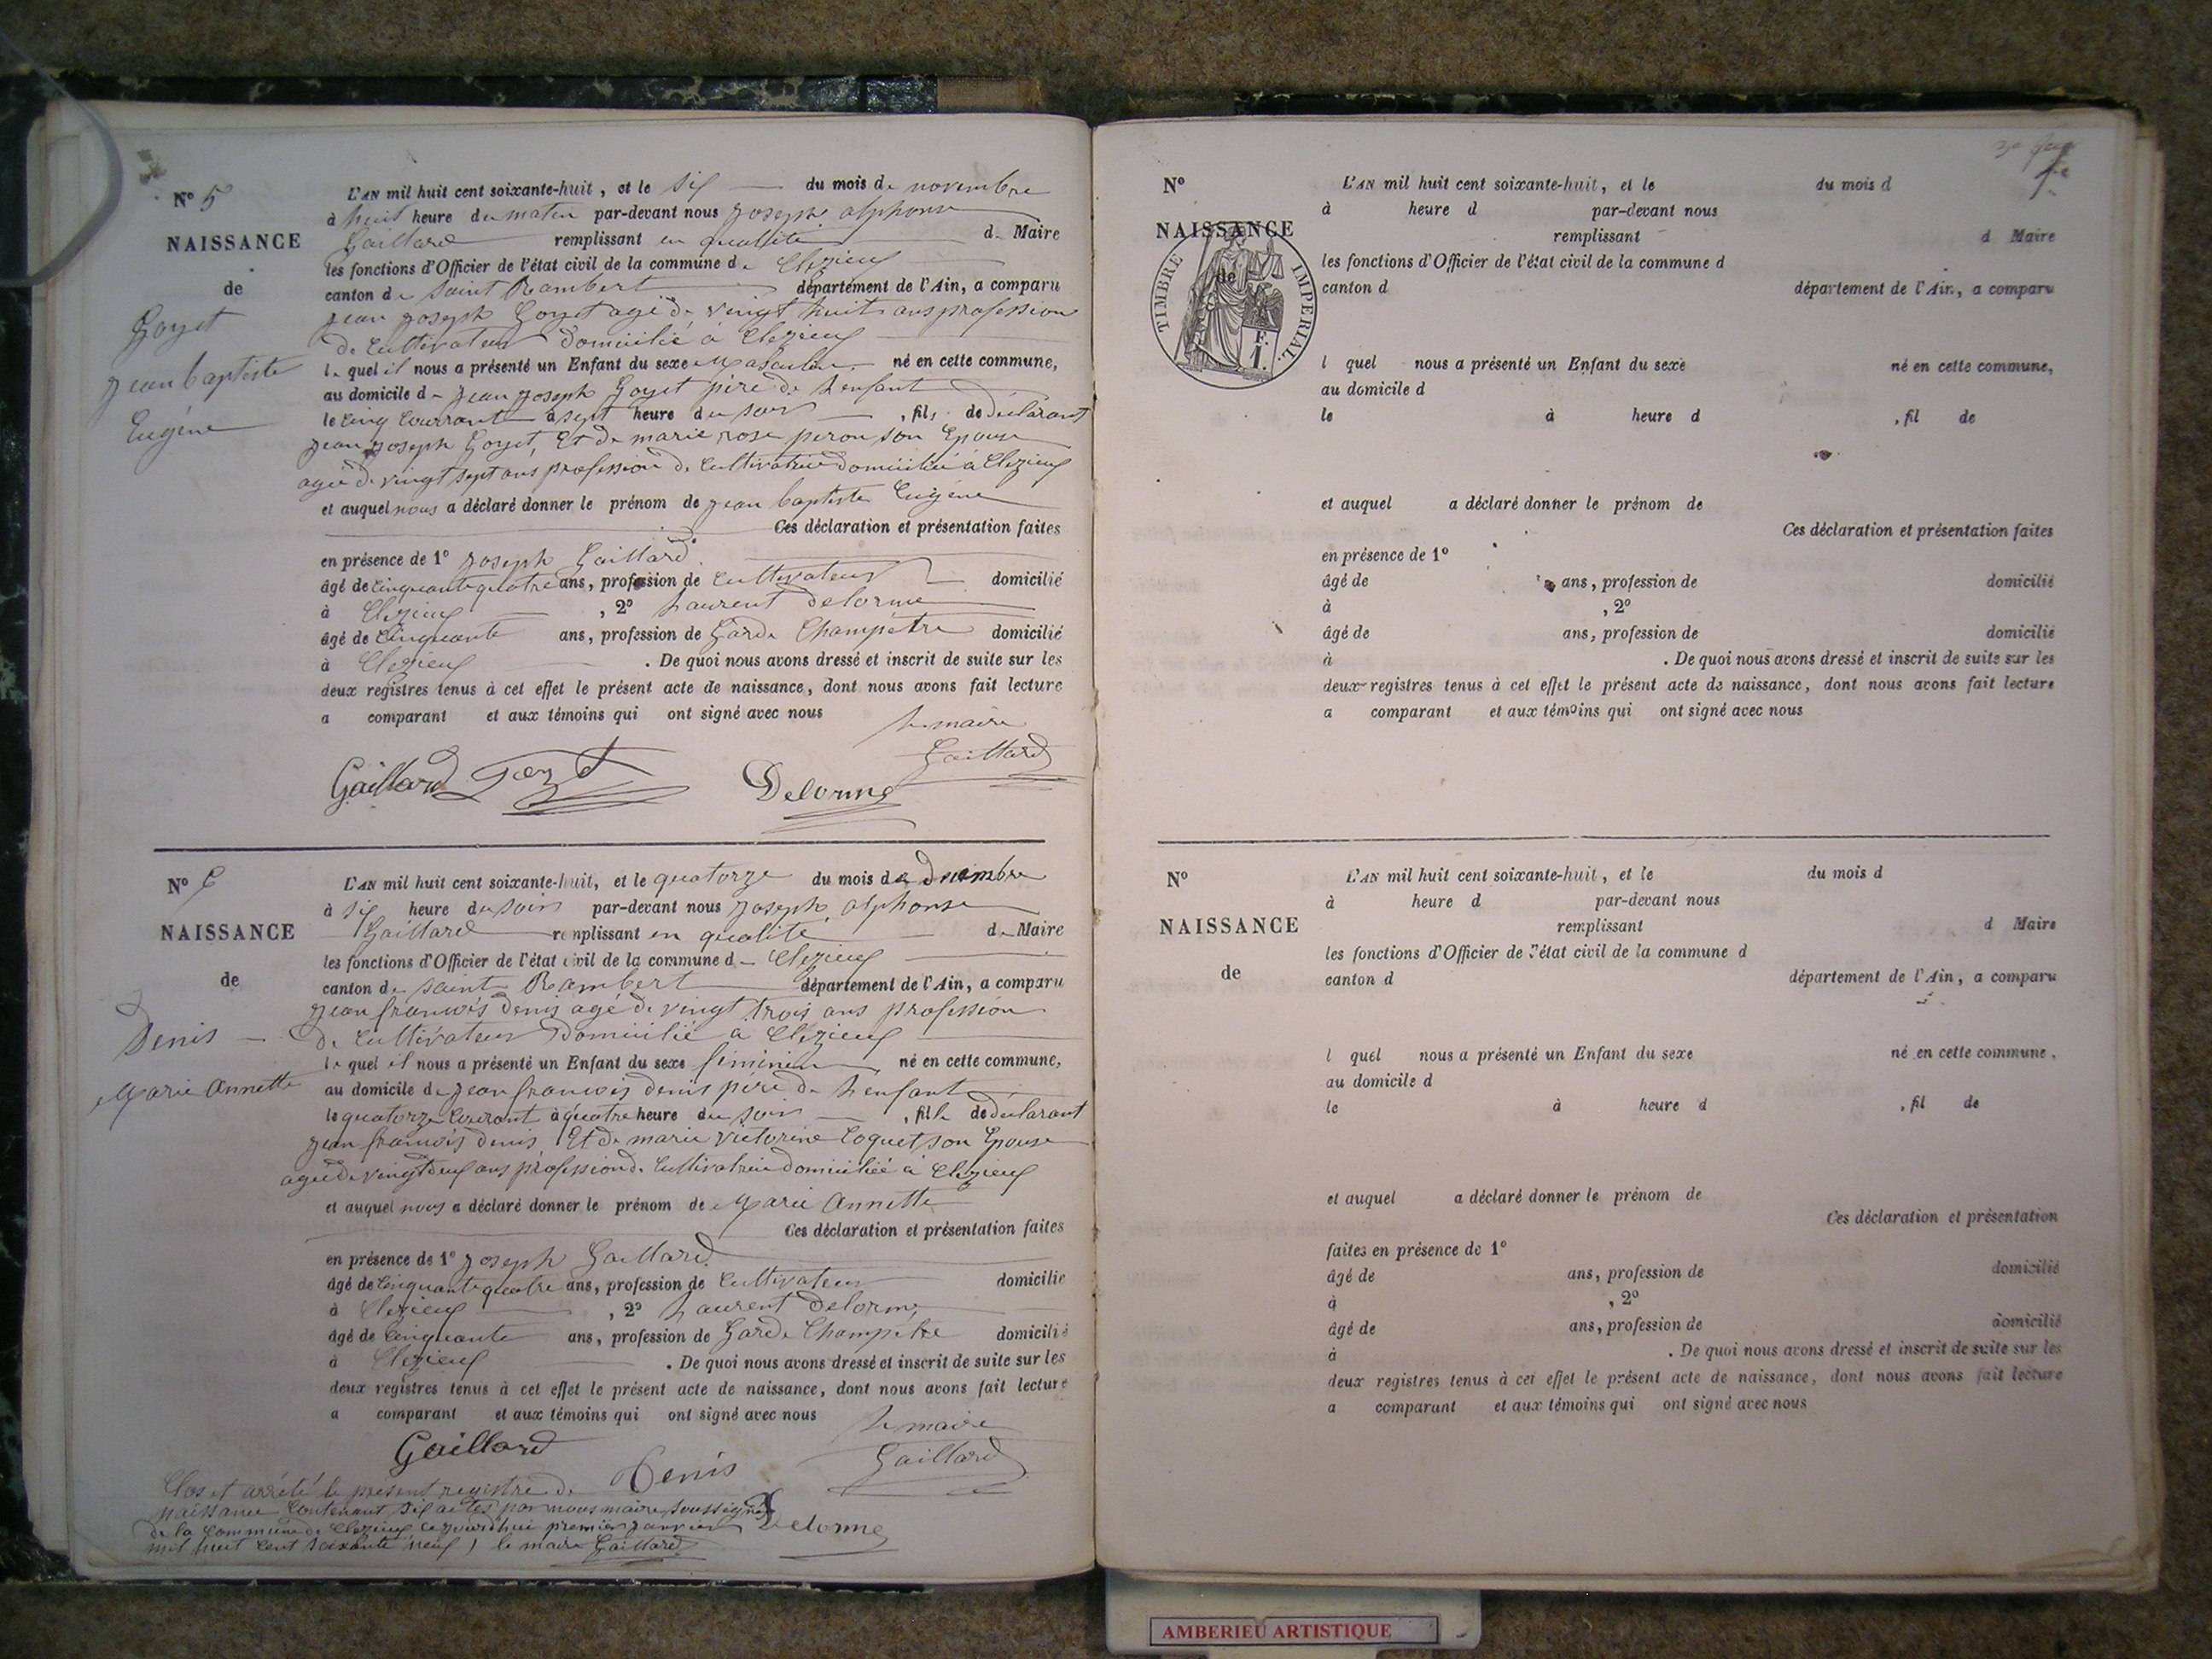 N° 5
NAISSANCE
de
Goyet
jean baptiste
Eugène
L'AN mil huit cent soixante-huit, et le six du mois de novembre
à huit heure du matin par-devant nous joseph alphonse
Gaillard remplissant en qualité de Maire
les fonctions d'Officier de l'état civil de la commune de Clezieux
canton de saint Rambert département de l'Ain, a comparu
jean joseph Goyet agé de vingt huit ans profession
de cultivateur domicilié à Clezieux
le quel il nous a présenté un Enfant du sexe Masculin né en cette commune,
au domicile de jean joseph Goyet père de l'enfant
le cinq courrant à sept heure du soir , fils de déclarant
jean joseph Goyet, Et de marie rose peron son Epouse
agée de vingt sept ans profession de cultivatrice domiciliée à Clezieux
et auquel nous a déclaré donner le prénom de jean baptiste Eugène
Ces déclaration et présentation faites
en présence de 1° joseph Gaillard
âgé de cinquante quatre ans, profession de cultivateur domicilié
à Clezieux , 2° Laurent Delorme
âgé de Cinquante ans, profession de Garde Champetre domicilié
à Clezieux . De quoi nous avons dressé et inscrit de suite sur les
deux registres tenus à cet effet le présent acte de naissance, dont nous avons fait lecture
a comparant et aux témoins qui ont signé avec nous
Le maire
Gaillard
Gaillard Goyet Delorme
N° 6
NAISSANCE
de
Denis
Marie Annette
L'AN mil huit cent soixante-huit, et le quatorze du mois de decembre
à six heure du soir par-devant nous joseph alphonse
Gaillard remplissant en qualité de Maire
les fonctions d'Officier de l'état civil de la commune de Clezieux
canton de saint Rambert département de l'Ain, a comparu
jean francois denis agé de vingt trois ans profession
de cultivateur domicilié a Clezieux
le quel il nous a présenté un Enfant du sexe féminin né en cette commune,
au domicile de jean francois denis père de l'enfant
le quatorze courant à quatre heure du soir , fille de déclarant
jean francois denis Et de marie victorine Coquet son Epouse
agée de vingt deux ans profession de cultivatrice domiciliée à Clezieux
et auquel nous a déclaré donner le prénom de Marie Annette
Ces déclaration et présentation faites
en présence de 1° joseph Gaillard
âgé de cinquante quatre ans, profession de cultivateur domicilié
à Clezieux , 2° Laurent Delorme
âgé de Cinquante ans, profession de Garde Champêtre domicilié
à Clezieux . De quoi nous avons dressé et inscrit de suite sur les
deux registres tenus à cet effet le présent acte de naissance, dont nous avons fait lecture
a comparant et aux témoins qui ont signé avec nous
Le maire
Gaillard
Gaillard
Denis
Delorme
Clos et arrêté le present registre de
naissance contenant six actes par nous maire soussigné
de la commune de Clezieux ce jourd'hui premier janvier
mil huit cent soixante neuf, le maire Gaillard
N°
NAISSANCE
de
TIMBRE IMPERIAL
L'AN mil huit cent soixante-huit, et le du mois d
à heure d par-devant nous
remplissant d Maire
les fonctions d'Officier de l'état civil de la commune d
canton d département de l'Ain, a comparu
l quel nous a présenté un Enfant du sexe né en cette commune,
au domicile d
le à heure d , fil de
et auquel a déclaré donner le prénom de
Ces déclaration et présentation faites
en présence de 1°
âgé de ans, profession de domicilié
à , 2°
âgé de ans, profession de domicilié
à . De quoi nous avons dressé et inscrit de suite sur les
deux registres tenus à cet effet le présent acte de naissance, dont nous avons fait lecture
a comparant et aux témoins qui ont signé avec nous
N°
NAISSANCE
de
L'AN mil huit cent soixante-huit, et le du mois d
à heure d par-devant nous
remplissant d Maire
les fonctions d'Officier de l'état civil de la commune d
canton d département de l'Ain, a comparu
l quel nous a présenté un Enfant du sexe né en cette commune,
au domicile d
le à heure d , fil de
et auquel a déclaré donner le prénom de
Ces déclaration et présentation
faites en présence de 1°
âgé de ans, profession de domicilié
à , 2°
âgé de ans, profession de domicilié
à . De quoi nous avons dressé et inscrit de suite sur les
deux registres tenus à cet effet le présent acte de naissance, dont nous avons fait lecture
a comparant et aux témoins qui ont signé avec nous
AMBERIEU ARTISTIQUE